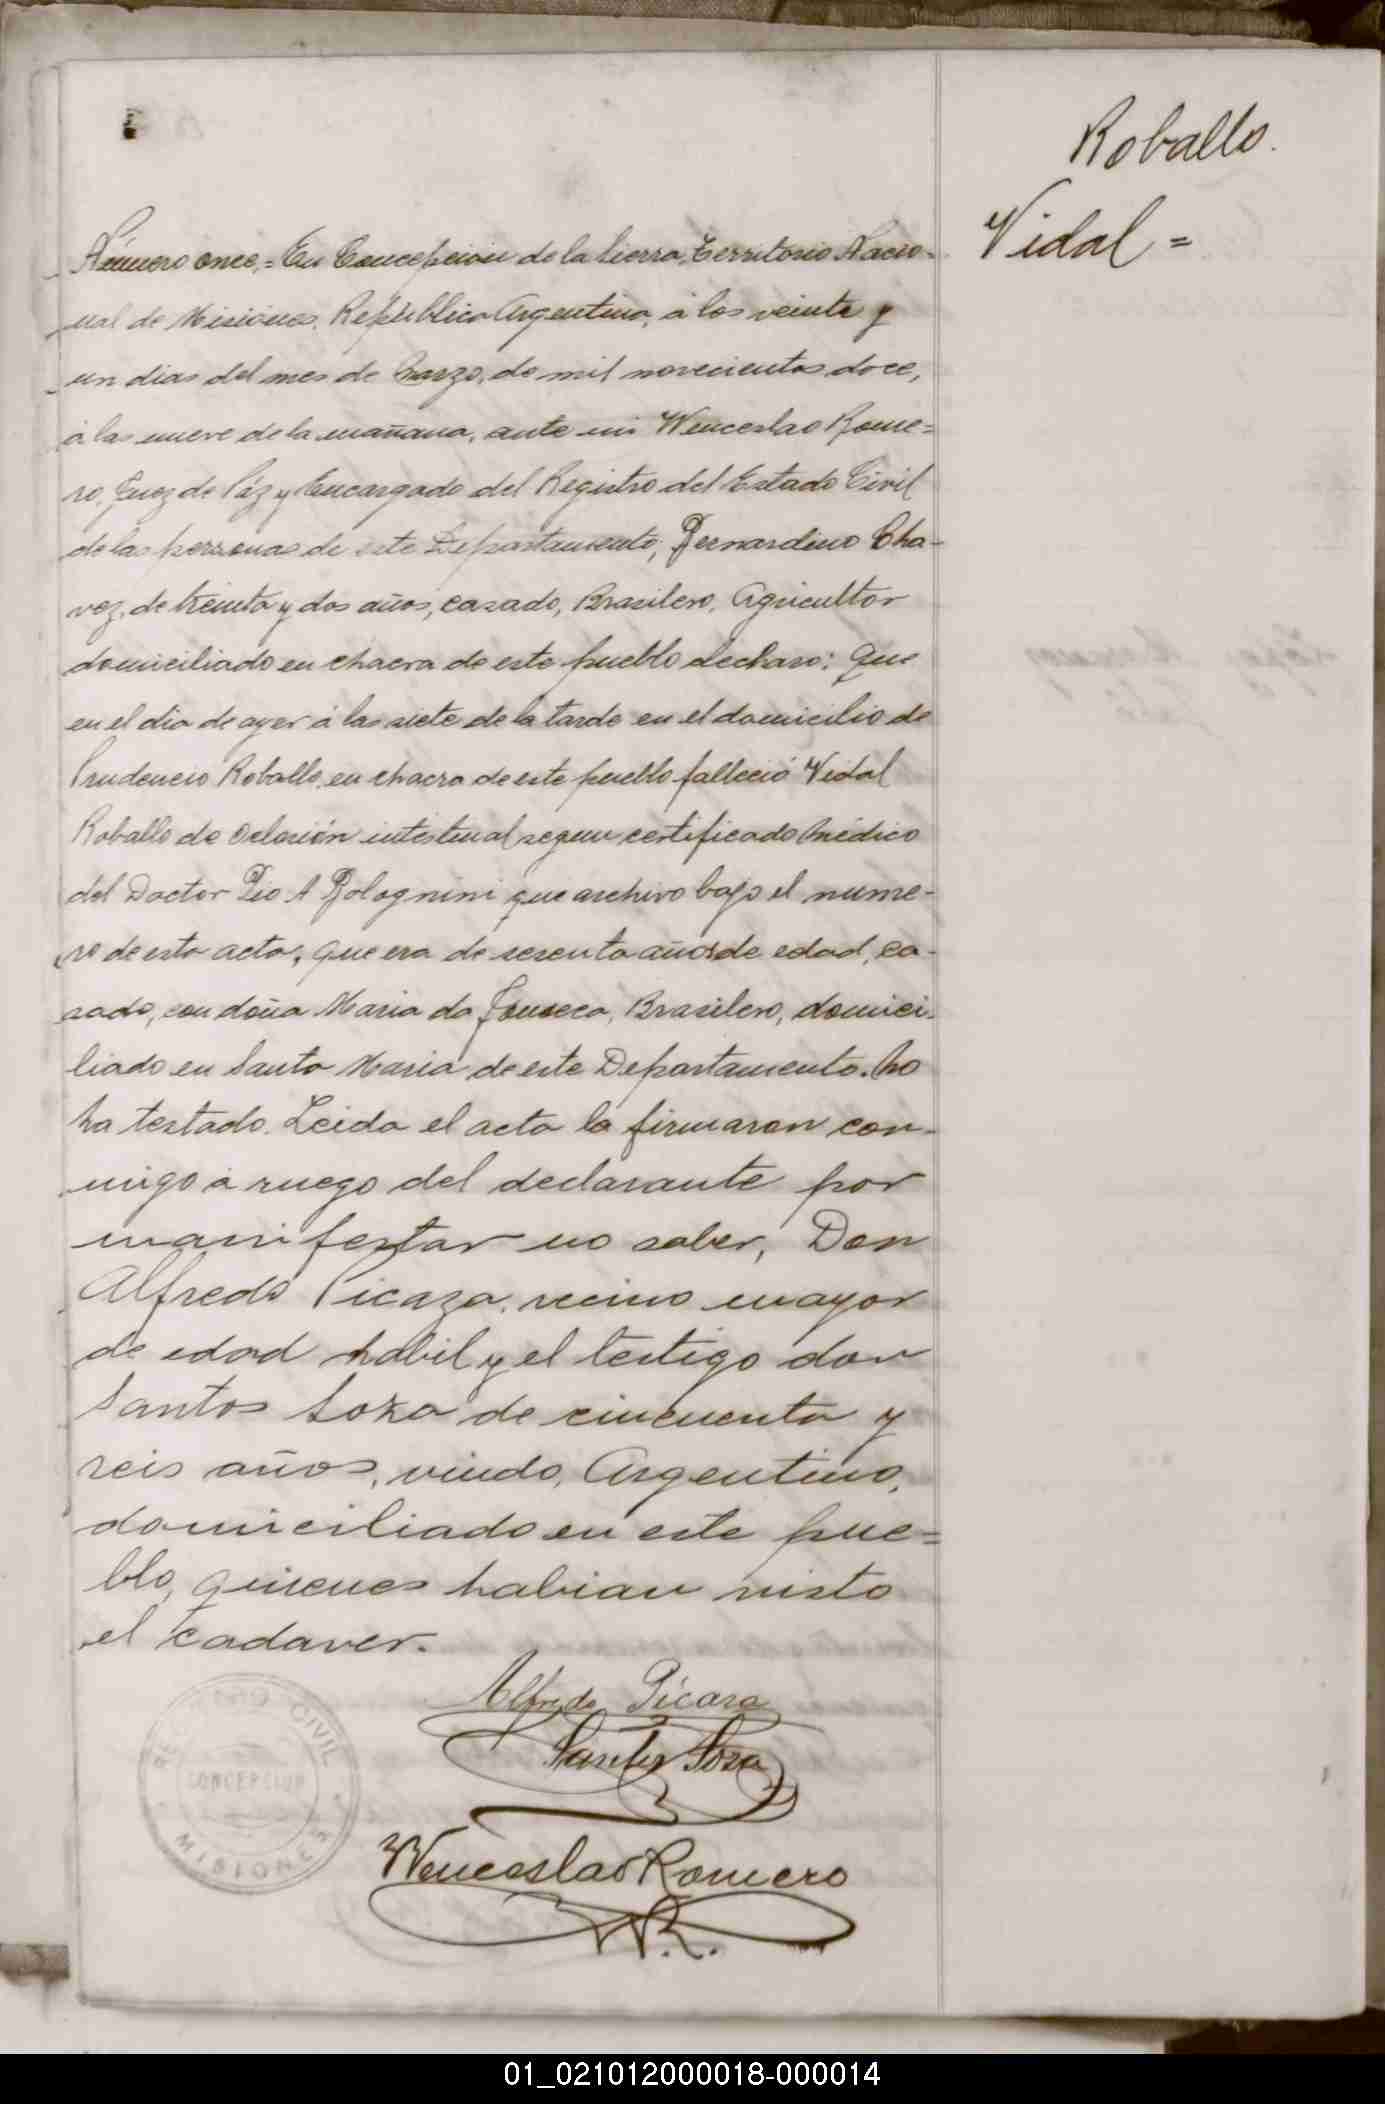 Roballo.
Vidal =
Número once,= En Concepción de la Sierra, Territorio Nacio=
nal de Misiones, República Argentina, á los veinte y
un dias del mes de Marzo, de mil novecientos doce,
á las nueve de la mañana, ante mi Wenceslao Rome=
ro, Juez de Páz y Encargado del Registro del Estado Civil
de las personas de este Departamento, Bernardino Cha-
vez, de treinta y dos años, casado, Brasilero, Agricultor
domiciliado en chacra de este pueblo declaro: Que
en el dia de ayer á las siete de la tarde en el domicilio de
Prudencio Roballo, en chacra de este pueblo falleció Vidal
Roballo de oclusión intestinal segun certificado médico
del Doctor Pio A Bolognini que archivo bajo el nume-
ro de esta acta, que era de sesenta años de edad, ca-
sado, con doña Maria da Fonseca, Brasilero, domici-
liado en Santa Maria de este Departamento. No
ha testado. Leida el acta la firmaron con-
migo á ruego del declarante por
manifestar no saber, Don
Alfredo Picaza, vecino mayor
de edad habil y el testigo don
Santos Soza de cincuenta y
seis años, viudo, Argentino,
domiciliado en este pue=
blo, quienes habian visto
el cadaver.
Alfredo Pícasa
Santos Sosa
Wenceslao Romero
W.R.
REGISTRO CIVIL
CONCEPCION
MISIONES
01_021012000018-000014